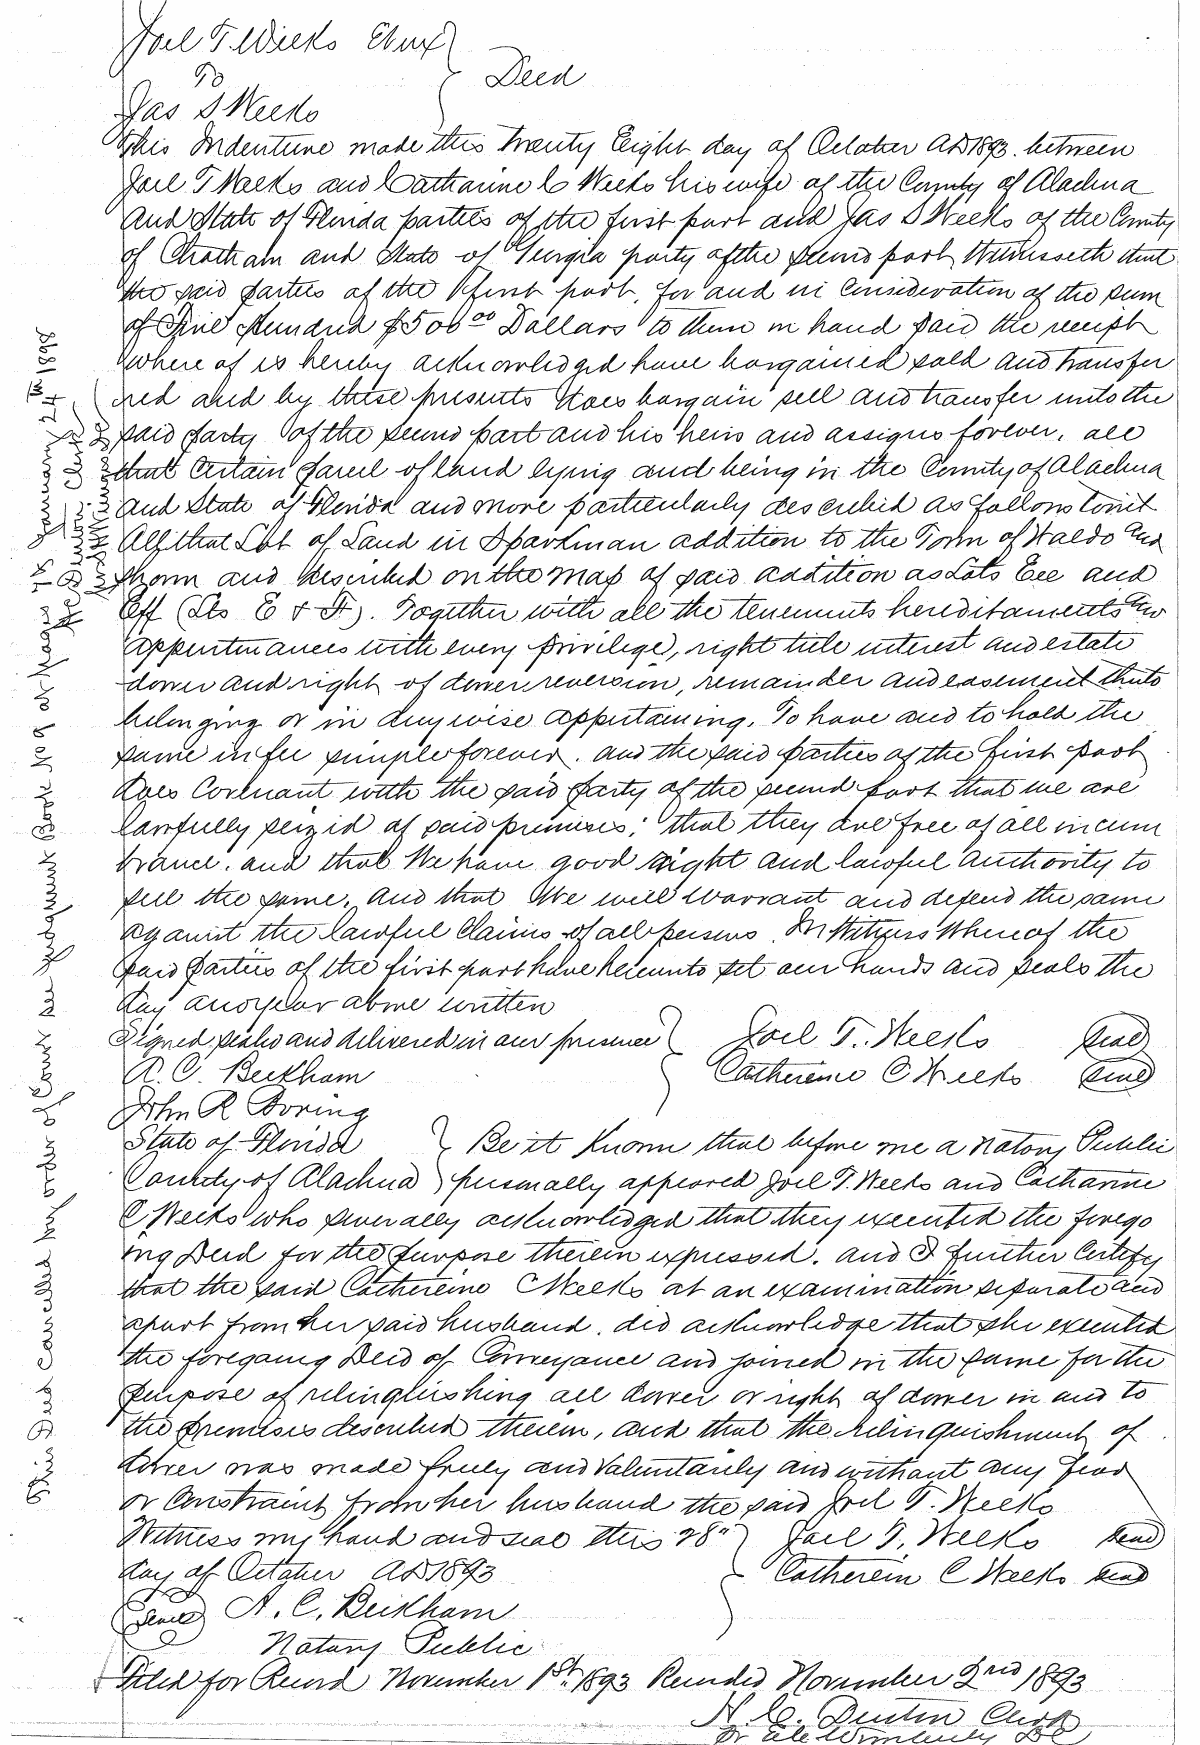 Joel T. Weeks Et ux
To
Deed
Jas S Weeks
This Indenture made this Twenty Eight day of October AD 1893. between
Joel T Weeks and Catharine C Weeks his wife of the County of Alachua
And State of Florida parties of the first part and Jas S Weeks of the County
of Chatham and State of Georgia party of the second part Witnesseth that
the said parties of the first part, for and in Consideration of the sum
of Five Hundred $500 00 Dollars to them in hand paid the receipt
where of is hereby acknowledged have bargained sold and transfer
red and by these presents does bargain sell and transfer unto the
said party of the second part and his heirs and assigns forever, all
that Certain parcel of land lying and being in the County of Alachua
And State of Florida and more particularly described as follows towit
All that Lot of Land in Sparkman addition to the Town of Waldo and
shown and described on the map of said addition as Lots Eee and
Eff (Lts E & F). Together with all the tenements hereditaments and
appurtenances with every privilege, right title interest and estate
dower and right of dower reversion, remainder and easement thereto
belonging or in anywise appertaining. To have and to hold the
same in fee simple forever. and the said parties of the first part
does Covenant with the said party of the second part that we are
lawfully seized of said premises; that they are free of all incum
brance. and that We have good right and lawful authority to
sell the same. And that We will warrant and defend the same
against the lawful Claims of all persons. In Witness Whereof the
said parties of the first part have hereunto set our hands and seals the
day and year above written
Signed sealed and delivered in our presence Joel T. Weeks seal
A. C. Beckham Catherine C Weeks seal
John R Boring
State of Florida Be it Known that before me a Notary Public
County of Alachua personally appeared Joel T. Weeks and Catharine
C Weeks who severally acknowledged that they executed the forego
ing Deed for the purpose therein expressed. and I further Certify
that the said Catherine C Weeks at an examination separate and
apart from her said husband. did acknowledge that she executed
the foregoing Deed of Conveyance and joined in the same for the
purpose of relinquishing all dower or right of dower in and to
the premises described therein, and that the relinquishment of
dower was made freely and Voluntarily and without any fear
or Constraint from her husband the said Joel T. Weeks
Witness my hand and seal this 28" Joel T. Weeks seal
day of October AD 1893 Catherein C Weeks seal
(Seal) A. C. Beckham
Notary Public
Filed for Record November 1st 1893 Recorded November 2nd 1893
H. C. Denton Clerk
DC
This Deed cancelled by order of Court see Judgment Book No 9 at Page January 24th 1898